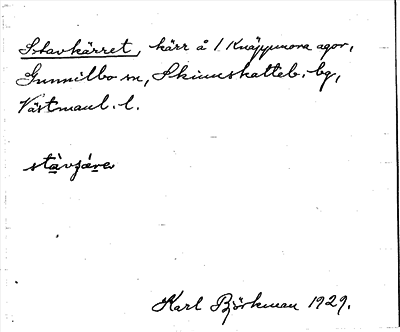 Stavkärret, kärr å 1 Knäppmora agor,
Gunnilbo sn, Skinnskatteb. bg,
Västmanl. l.
stàvɟärɛ
Karl Björkman 1929.